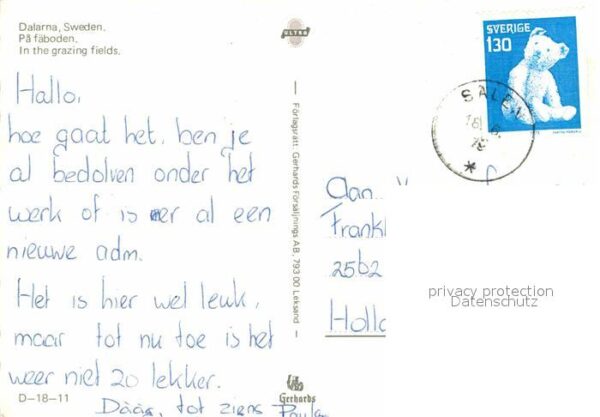 Dalarna, Sweden.
På fäboden.
In the grazing fields.
ULTRA
SVERIGE
130
SÄLEN
Hallo,
hoe gaat het, ben je
al bedolven onder het
werk of is er al een
nieuwe adm.
Het is hier wel leuk,
maar tot nu toe is het
weer niet zo lekker.
Dààg, tot ziens Paula
Förlagsrätt: Gerhards Försäljnings AB, 793 00 Leksand
Aan
Frankl
2562
Holla
privacy protection
Datenschutz
D-18-11
Gerhards